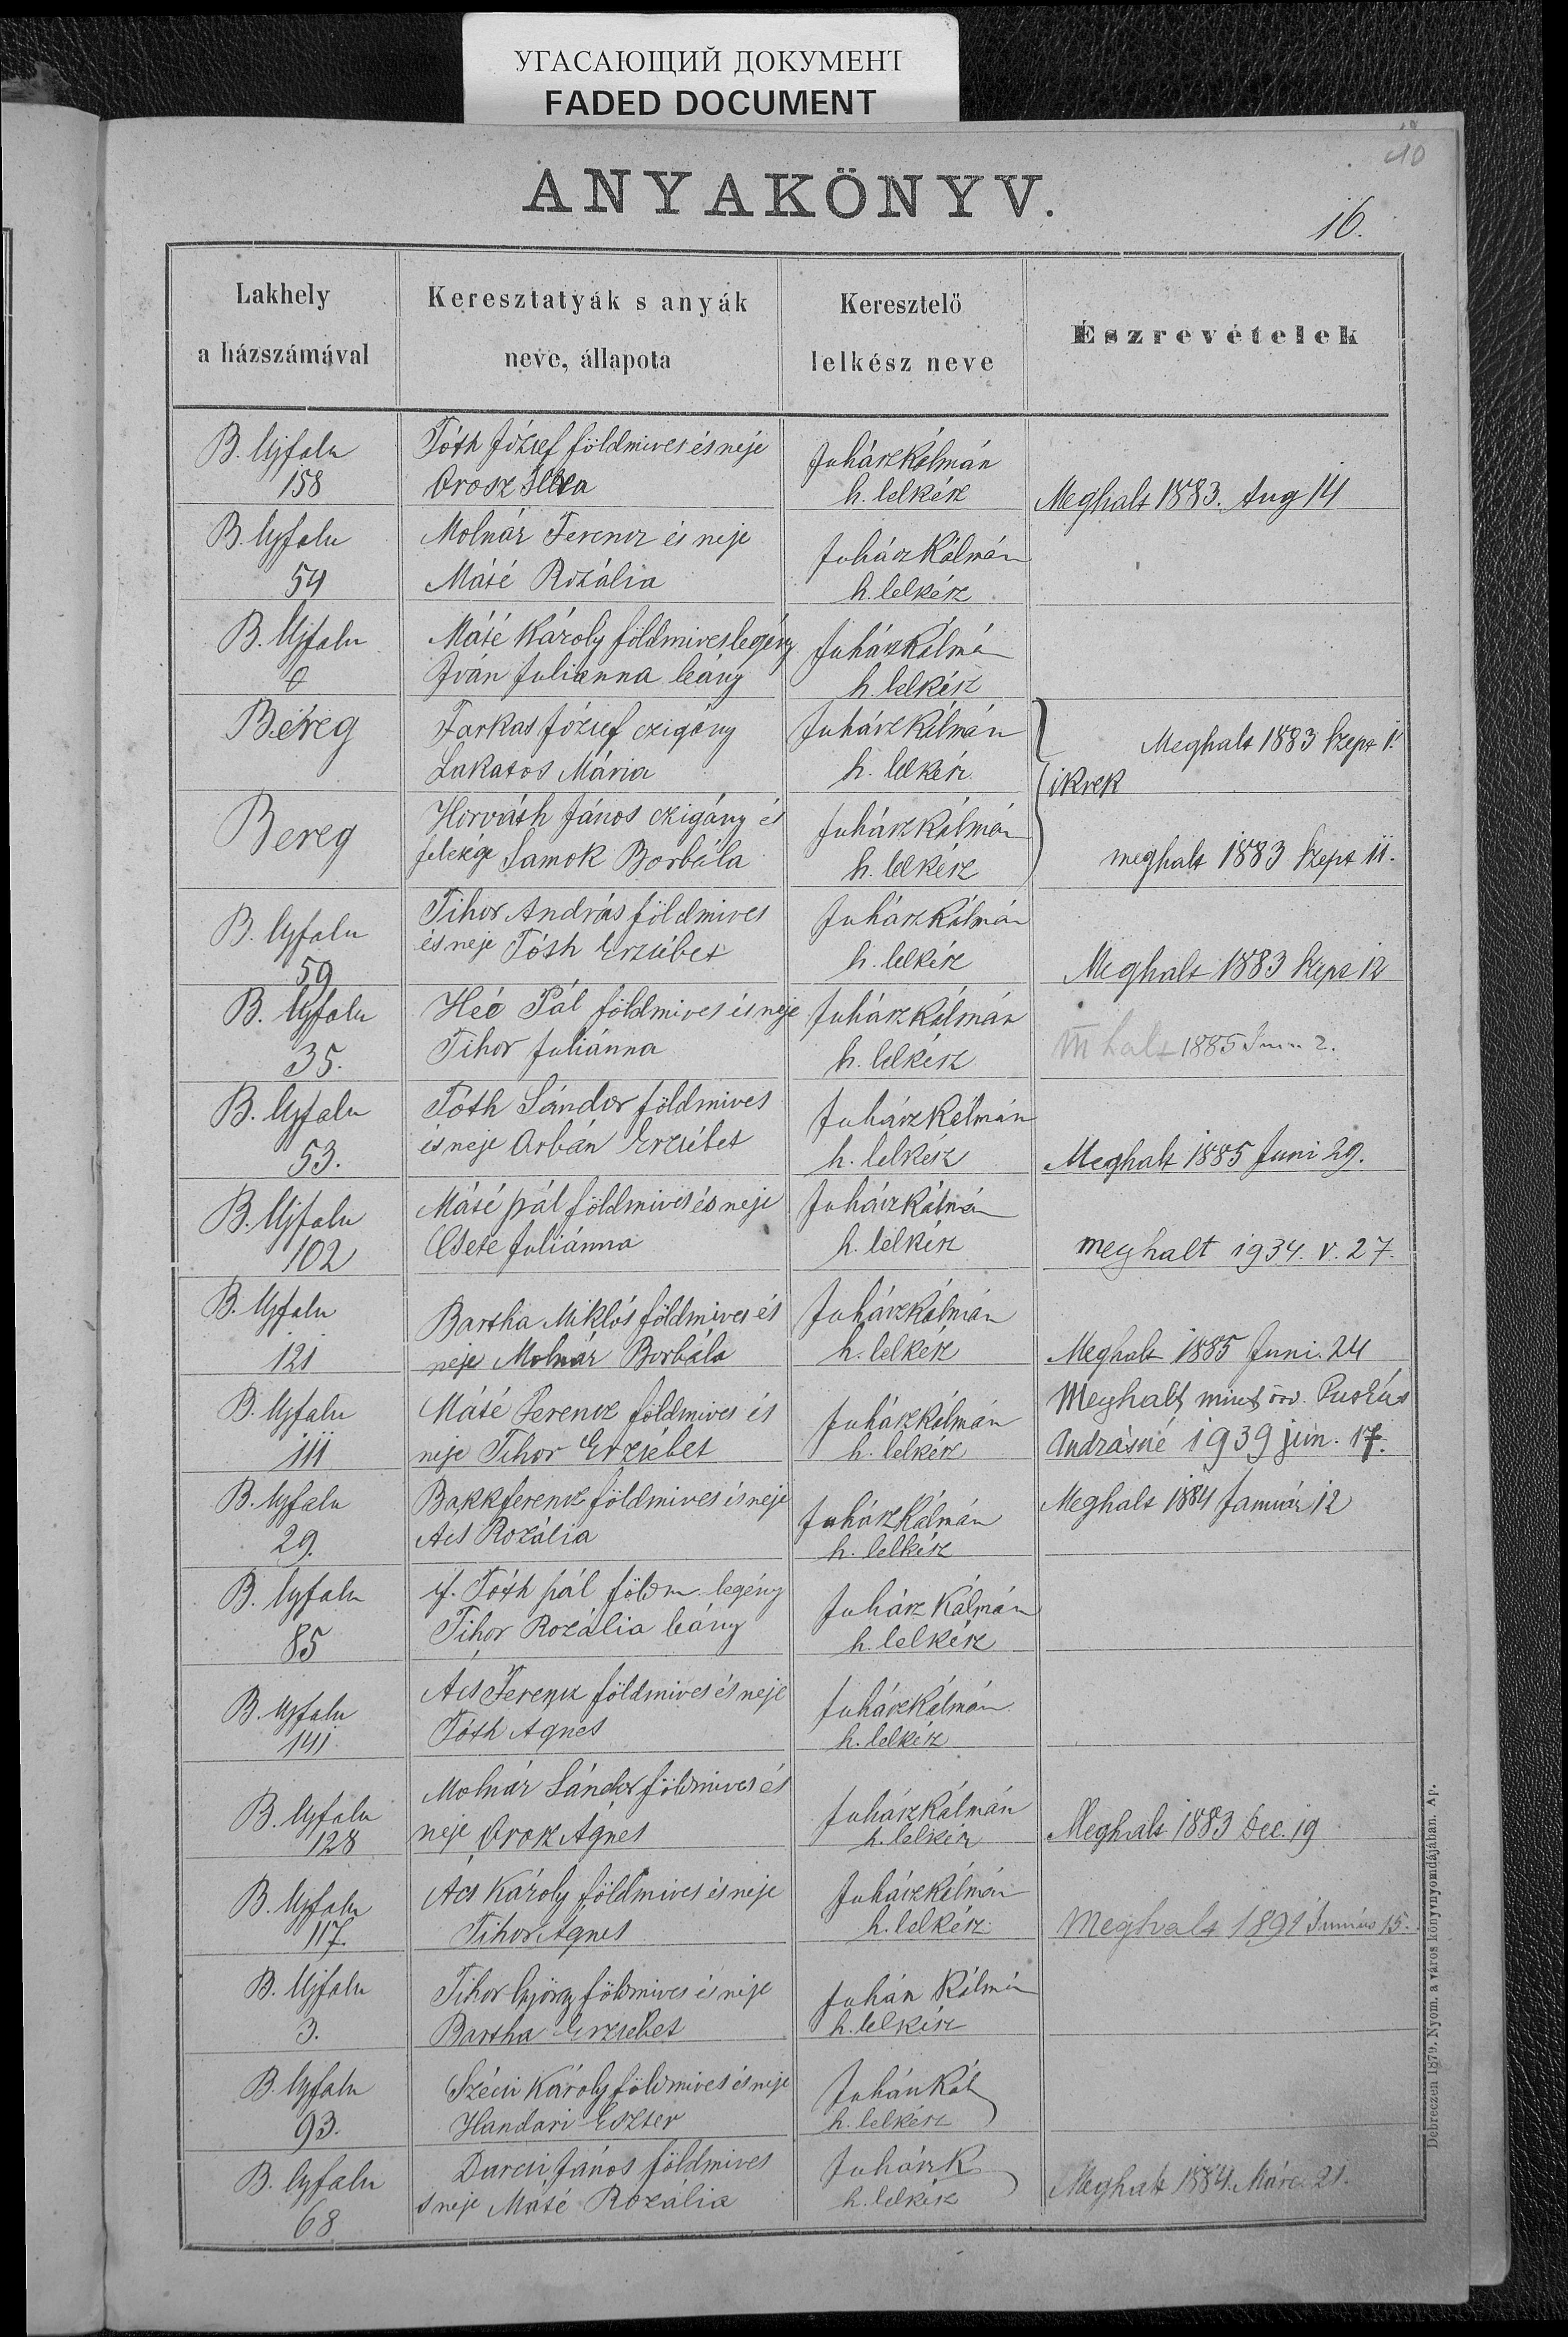 УГАСАЮЩИЙ ДОКУМЕНТ
FADED DOCUMENT
10
ANYAKÖNYV.
16.
Lakhely
a házszámával
Keresztatyák s anyák
neve, állapota
Keresztelő
lelkész neve
Észrevételek
B. Ujfalu
158
Tóth József földmives és neje
Orosz
Juhász Kálmán
h. lelkész
Meghalt 1883. Aug 14
B. Ujfalu
54
Molnár Ferencz és neje
Máté Rozália
Juhász Kálmán
h. lelkész
B. Ujfalu
Máté Károly földmives legény
Iván Julianna leány
Juhász Kálmá
h. lelkész
Bereg
Farkas József czigány
Lakatos Mária
Juhász Kálmán
h. lelkész
Meghalt 1883 Szept 1.
ikrek
Bereg
Horváth János czigány és
felesége Samok Borbála
Juhász Kálmán
h. lelkész
meghalt 1883 Szept 11.
B. Ujfalu
59
Tihor András földmives
és neje Tóth Erzsébet
Juhász Kálmán
h. lelkész
Meghalt 1883 Szept 12
B. Ujfalu
35.
Héé Pál földmives és neje
Tihor Juliánna
Juhász Kálmán
h. lelkész
m halt 1885 Juni 2.
B. Ujfalu
53.
Tóth Sándor földmives
és neje Orbán Erzsébet
Juhász Kálmán
h. lelkész
Meghalt 1885 Juni 29.
B. Ujfalu
102
Máté pál földmives és neje
Csete Juliánna
Juhász Kálmán
h. lelkész
meghalt 1934. V. 27.
B. Ujfalu
121
Bartha Miklós földmives és
neje Molnár Borbála
Juhász Kálmán
h. lelkész
Meghalt 1885 Juni. 24
B. Ujfalu
111
Máté Ferencz földmives és
neje Tihor Erzsébet
Juhász Kálmán
h. lelkész
Meghalt mint özv. Puskás
Andrásné 1939 jún. 17.
B. Ujfalu
29.
Bakk ferencz földmives és neje
Acs Rozália
Juhász Kálmán
h. lelkész
Meghalt 1884 Január 12
B. Ujfalu
85
if. Tóth pál földm. legény
Tihor Rozália leány
Juhász Kálmán
h. lelkész
B. Ujfalu
141
Ács Ferencz földmives és neje
Tóth Agnes
Juhász Kálmán
h. lelkész
B. Ujfalu
128
Molnár Sándor földmives és
neje Orosz Ágnes
Juhász Kálmán
h. lelkész
Meghalt 1883 Dec. 19
B. Ujfalu
117.
Ács Károly földmives és neje
Tihor Agnes
Juhász Kálmán
h. lelkész
Meghalt 1891 Junius 15.
B. Ujfalu
3.
Tihor György földmives és neje
Bartha Erzsebet
Juhász Kálmán
h. lelkész
B. Ujfalu
93.
Szécsi Károly földmives és neje
Handari Eszter
Juhász Kál
h. lelkész
B. Ujfalu
68
Darcsi János földmives
s neje Máté Rozália
Juhász K
h. lelkész
Meghalt 1884. Márc 21.
Debreczen 1879. Nyom. a város könyvnyomdájában. Ap.